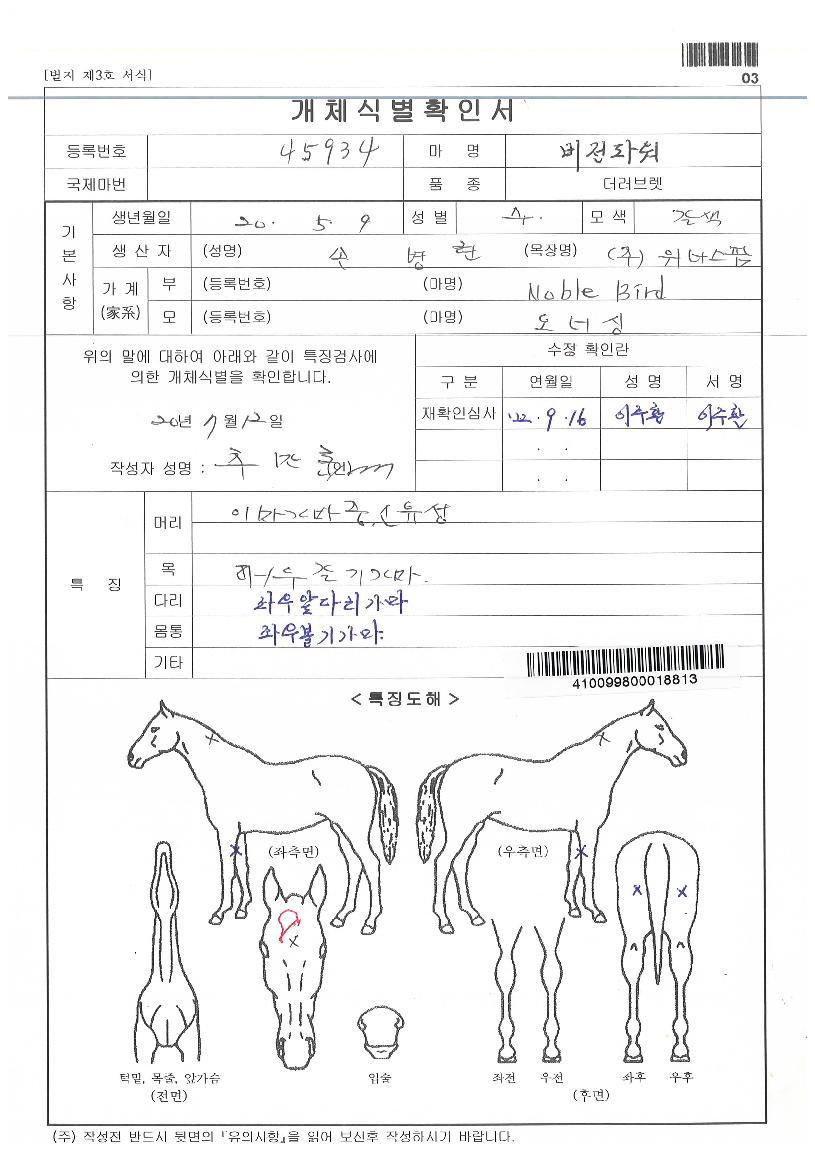 [별지 제3호 서식]
03
개체식별확인서
등록번호 45934 마 명 비전파워
국제마번 품 종 더러브렛
기본사항
생년월일 20. 5. 9 성별 수. 모색 갈색
생산자 (성명) 손 병 란 (목장명) (주) 위너스팜
가계 (家系) 부 (등록번호) (마명) Noble Bird
모 (등록번호) (마명) 도너싱
위의 말에 대하여 아래와 같이 특징검사에
의한 개체식별을 확인합니다.
20년 7월 12일
작성자 성명 : (인)
수정 확인란
구 분 연월일 성 명 서 명
재확인심사 '22. 9. 16 이주환 이주환
. .
. .
특 징
머리 이마가마중,산류성
목
다리 좌우앞다리가마
몸통 좌우볼기가마.
기타
410099800018813
< 특징도해 >
(좌측면) (우측면)
턱밑, 목줄, 앞가슴
(전면)
입술
좌전 우전 좌후 우후
(후면)
(주) 작성전 반드시 뒷면의 『유의사항』을 읽어 보신후 작성하시기 바랍니다.